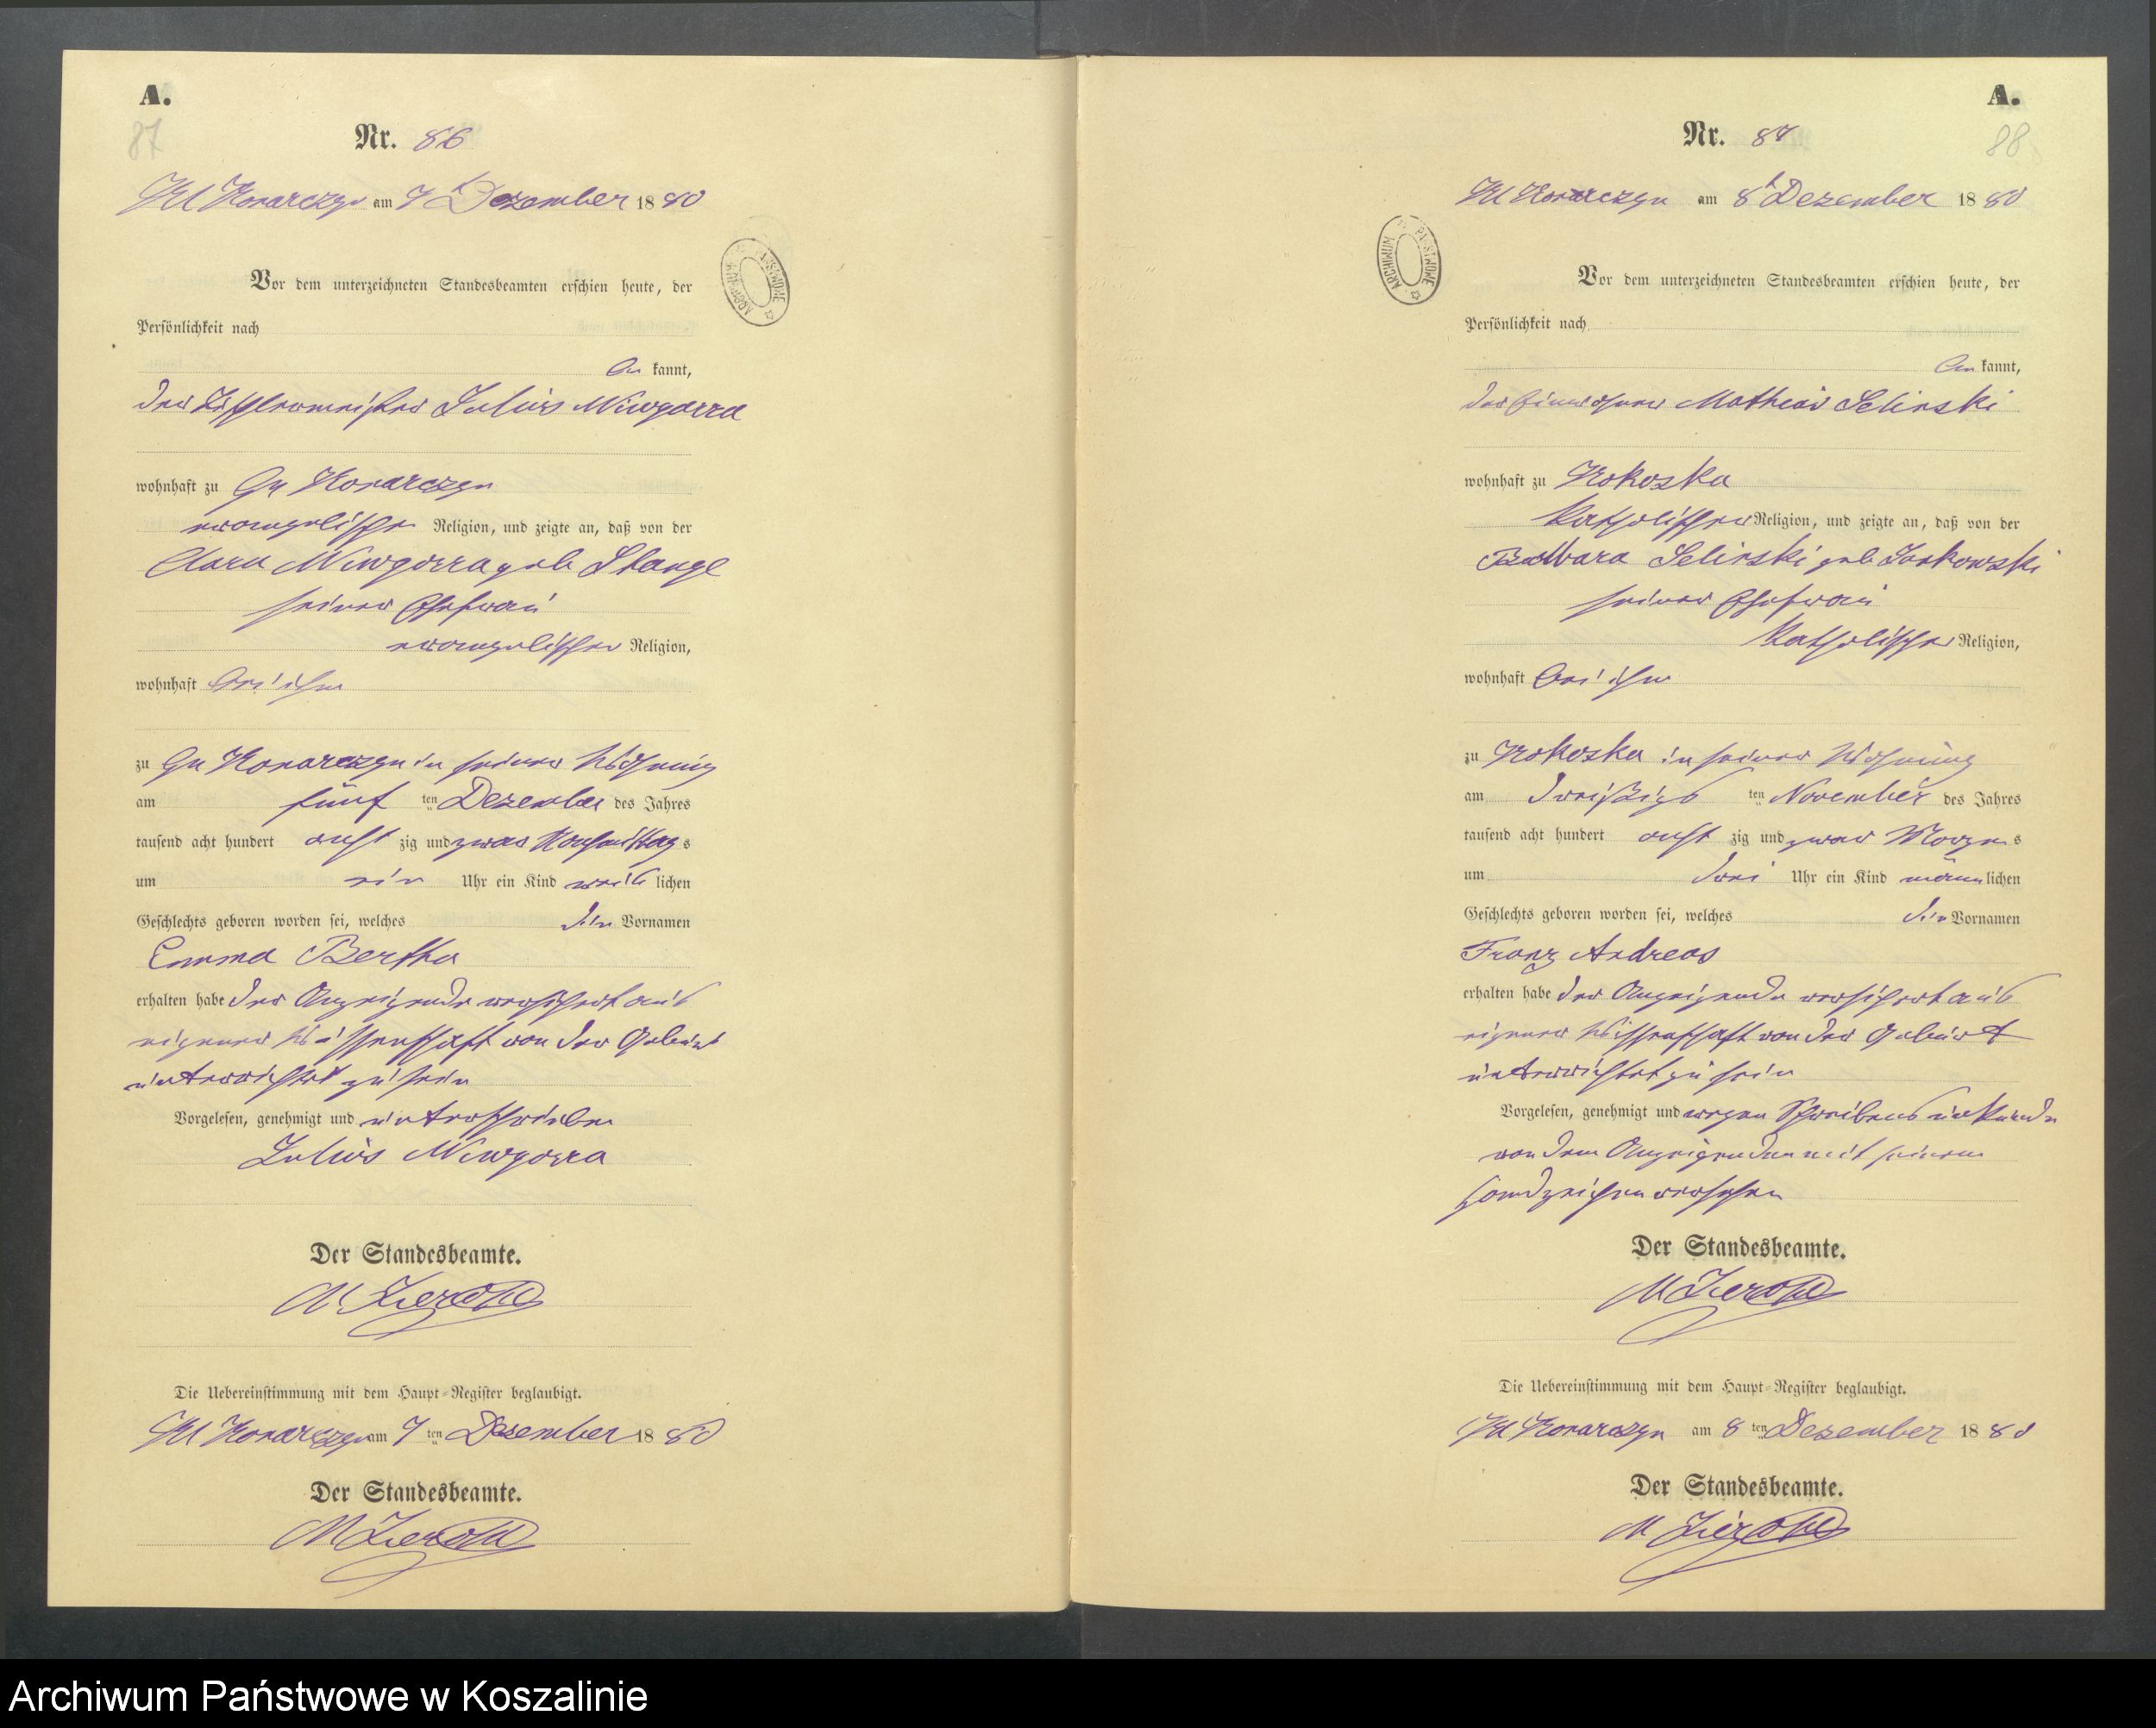 A.
87
Nr. 86
Kl Konarczyn am 7 Dezember 1880
Vor dem unterzeichneten Standesbeamten erschien heute, der
Persönlichkeit nach
be kannt,
der Tischlermeister Julius Niwgorra
wohnhaft zu Gr Konarczyn
evangelischer Religion, und zeigte an, daß von der
Clara Niwgorra geb Stange
seiner Ehefrau
evangelischer Religion,
wohnhaft bei ihm
zu Gr Konarczyn in seiner Wohnung
am fünf ten Dezember des Jahres
tausend acht hundert acht zig und zwar Nachmittags
um ein Uhr ein Kind weib lichen
Geschlechts geboren worden sei, welches die Vornamen
Emma Bertha
erhalten habe der Anzeigende versichert aus
eigener Wissenschaft von der Geburt
unterrichtet zu sein
Vorgelesen, genehmigt und unterschrieben
Julius Niwgorra
Der Standesbeamte.
Die Uebereinstimmung mit dem Haupt-Register beglaubigt.
Kl Konarczyn am 7 ten Dezember 1880
Der Standesbeamte.
A.
88
Nr. 87
Kl Konarczyn am 8 Dezember 1880
ARCHIWUM PAŃSTWOWE
Vor dem unterzeichneten Standesbeamten erschien heute, der
Persönlichkeit nach
be kannt,
der Einwohner Mathias Selinski
wohnhaft zu Kokoska
Katholischer Religion, und zeigte an, daß von der
Barbara Selinski geb Jankowski
seiner Ehefrau
Katholischer Religion,
wohnhaft bei ihm
zu Kokoska in seiner Wohnung
am dreißigs ten November des Jahres
tausend acht hundert acht zig und zwar Morgens
um drei Uhr ein Kind männ lichen
Geschlechts geboren worden sei, welches die Vornamen
Franz Andreas
erhalten habe der Anzeigende versichert aus
eigener Wissenschaft von der Geburt
unterrichtet zu sein
Vorgelesen, genehmigt und wegen Schreibens unkunde
von dem Anzeigenden mit seinem
Handzeichen versehen
Der Standesbeamte.
Die Uebereinstimmung mit dem Haupt-Register beglaubigt.
Kl Konarczyn am 8 ten Dezember 1880
Der Standesbeamte.
Archiwum Państwowe w Koszalinie